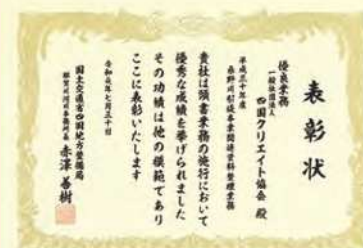 表彰状
優良業務
一般社団法人
四国クリエイト協会 殿
平成三十年度
事業関連資料整理業務
貴社は頭書業務の施行において
優秀な成績を挙げられました
その功績は他の模範であり
ここに表彰いたします
令和元年七月三十日
国土交通省四国地方整備局
那賀川河川事務所長 赤澤善樹